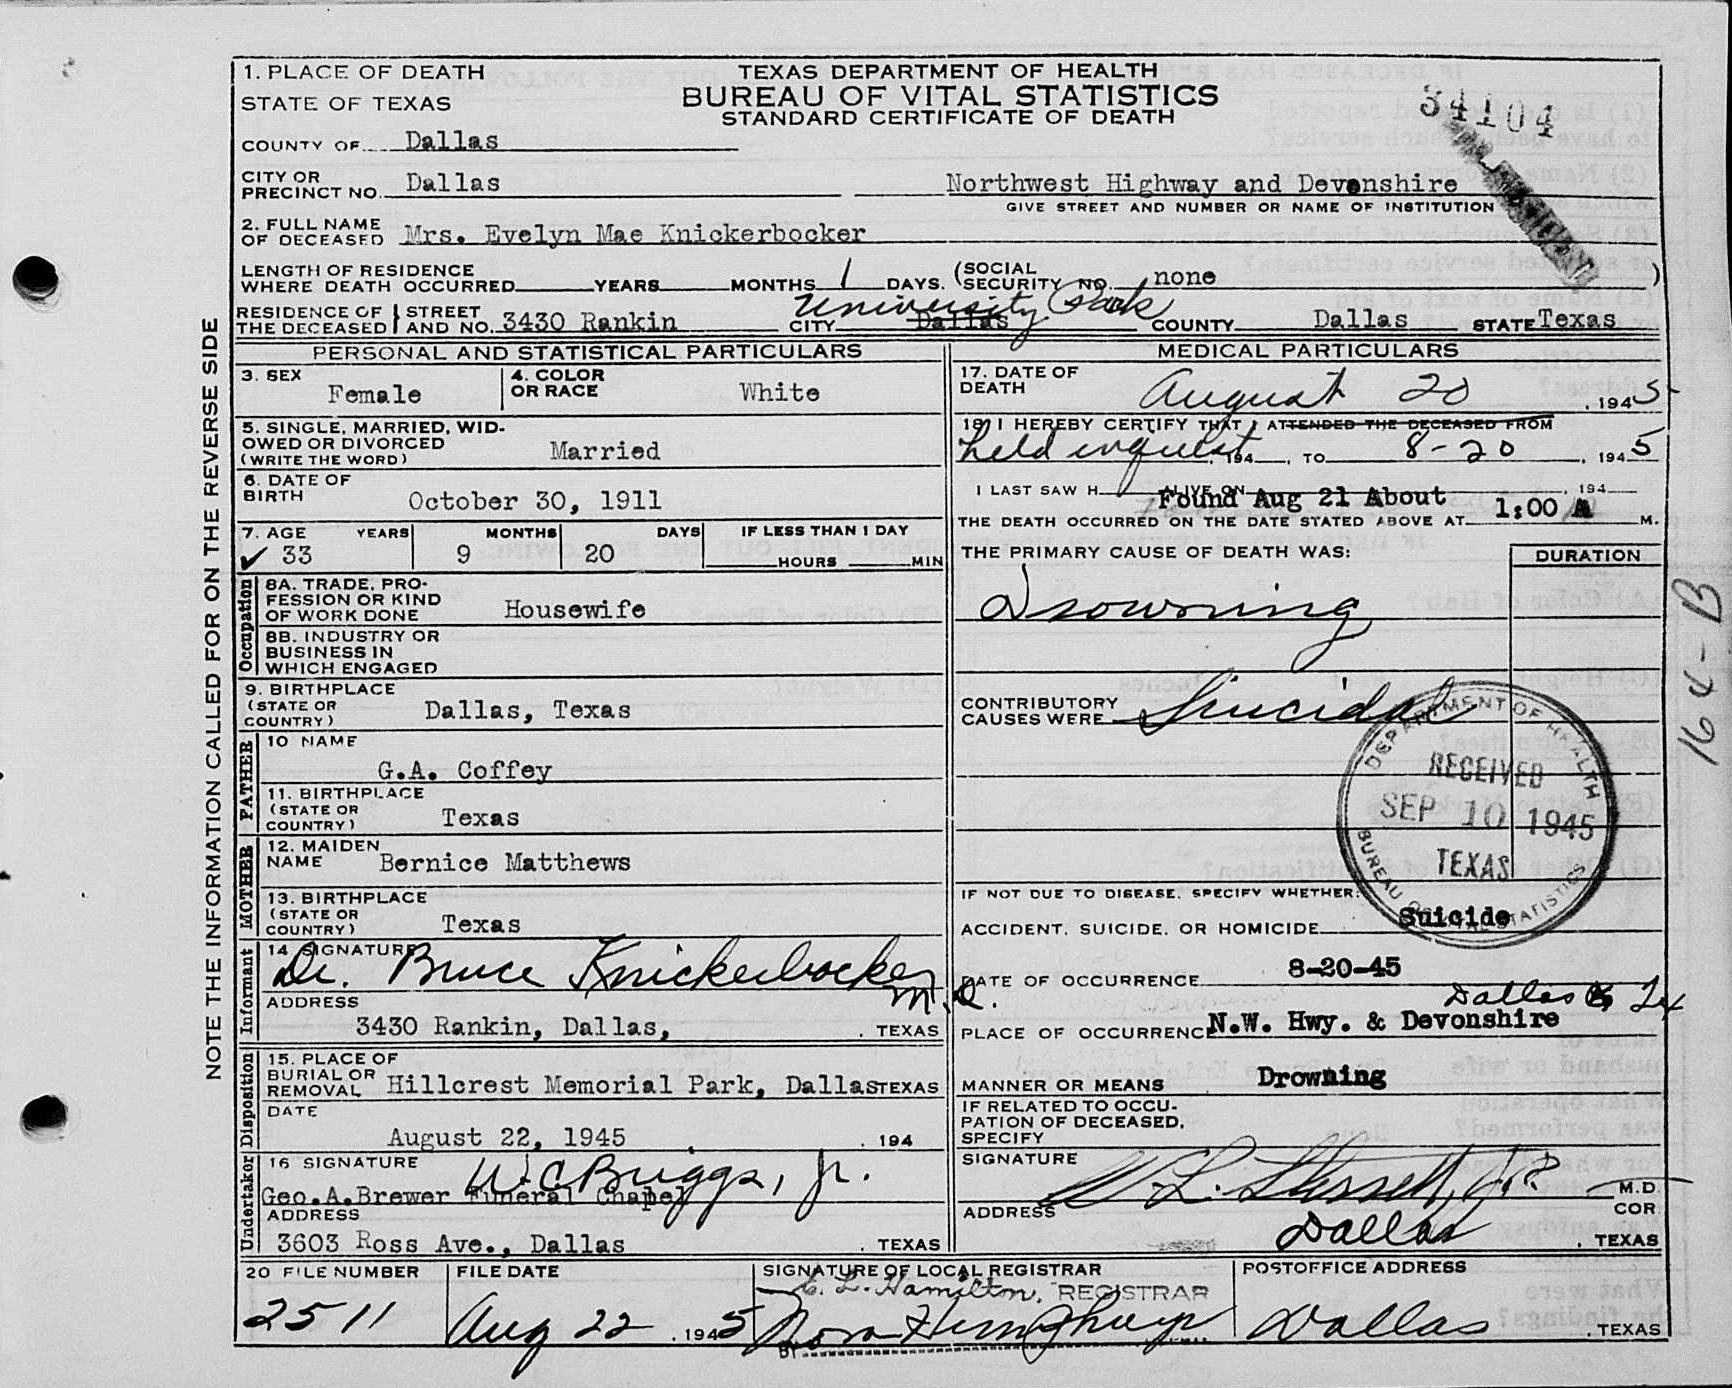 1. PLACE OF DEATH
STATE OF TEXAS
TEXAS DEPARTMENT OF HEALTH
BUREAU OF VITAL STATISTICS
STANDARD CERTIFICATE OF DEATH
34104
COUNTY OF Dallas
CITY OR PRECINCT NO. Dallas
Northwest Highway and Devonshire
GIVE STREET AND NUMBER OR NAME OF INSTITUTION
2. FULL NAME OF DECEASED Mrs. Evelyn Mae Knickerbocker
LENGTH OF RESIDENCE WHERE DEATH OCCURRED YEARS MONTHS 1 DAYS. (SOCIAL SECURITY NO. none )
University Park
RESIDENCE OF THE DECEASED STREET AND NO. 3430 Rankin CITY Dallas COUNTY Dallas STATE Texas
NOTE THE INFORMATION CALLED FOR ON THE REVERSE SIDE
PERSONAL AND STATISTICAL PARTICULARS
3. SEX Female
4. COLOR OR RACE White
5. SINGLE, MARRIED, WIDOWED OR DIVORCED (WRITE THE WORD) Married
6. DATE OF BIRTH October 30, 1911
7. AGE YEARS MONTHS DAYS IF LESS THAN 1 DAY
✓ 33 9 20 HOURS MIN
Occupation
8A. TRADE, PRO-
FESSION OR KIND
OF WORK DONE Housewife
8B. INDUSTRY OR
BUSINESS IN
WHICH ENGAGED
9. BIRTHPLACE
(STATE OR
COUNTRY) Dallas, Texas
FATHER
10 NAME
G.A. Coffey
11. BIRTHPLACE
(STATE OR
COUNTRY) Texas
MOTHER
12. MAIDEN
NAME Bernice Matthews
13. BIRTHPLACE
(STATE OR
COUNTRY) Texas
Informant
14 SIGNATURE
Dr. Bruce Knickerbocker
M.D.
ADDRESS
3430 Rankin, Dallas, . TEXAS
Disposition
15. PLACE OF
BURIAL OR
REMOVAL Hillcrest Memorial Park, Dallas TEXAS
DATE
August 22, 1945 . 194
Undertaker
16 SIGNATURE W.C Briggs, Jr.
Geo.A.Brewer Funeral Chapel
ADDRESS
3603 Ross Ave., Dallas . TEXAS
MEDICAL PARTICULARS
17. DATE OF
DEATH August 20 , 1945
18 I HEREBY CERTIFY THAT I ATTENDED THE DECEASED FROM
held inquest , 194 , TO 8-20 , 1945
I LAST SAW H ALIVE ON , 194
Found Aug 21 About 1:00 A
THE DEATH OCCURRED ON THE DATE STATED ABOVE AT M.
THE PRIMARY CAUSE OF DEATH WAS: DURATION
Drowning
16 4-B
CONTRIBUTORY
CAUSES WERE Suicidal
DEPARTMENT OF HEALTH
RECEIVED
SEP 10 1945
TEXAS
BUREAU OF VITAL STATISTICS
IF NOT DUE TO DISEASE, SPECIFY WHETHER:
ACCIDENT, SUICIDE, OR HOMICIDE Suicide
DATE OF OCCURRENCE 8-20-45
Dallas Tex
PLACE OF OCCURRENCE N.W. Hwy. & Devonshire
MANNER OR MEANS Drowning
IF RELATED TO OCCU-
PATION OF DECEASED,
SPECIFY
SIGNATURE
M.D.
COR
ADDRESS Dallas . TEXAS
20 FILE NUMBER
2511
FILE DATE
Aug 22 . 1945
SIGNATURE OF LOCAL REGISTRAR
E. L. Hamilton, REGISTRAR
BY
POSTOFFICE ADDRESS
Dallas . TEXAS